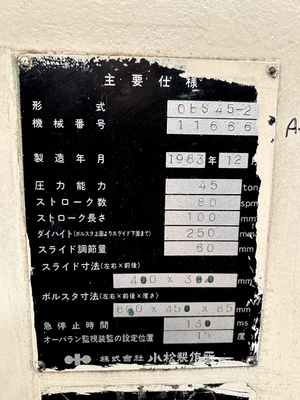 主要仕様
形式 OBS 45-2
機械番号 11666
製造年月 1983年12月
圧力能力 45 ton
ストローク数 80 spm
ストローク長さ 100 mm
ダイハイト(ボルスタ上面よりスライド下面まで) 250 mm
スライド調節量 60 mm
スライド寸法(左右×前後)
400 × 300 mm
ボルスタ寸法(左右×前後×厚さ)
800 × 450 × 85 mm
急停止時間 130 ms
オーバラン監視装置の設定位置 15 度
株式会社 小松製作所
A